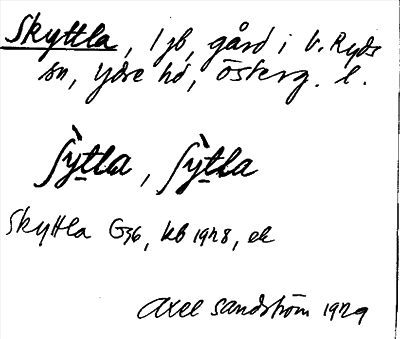 Skyttla, 1 jb, gård i V. Ryds
sn, Ydre hd, Österg. l.
ʃỳtla, ʃỳtla
Skyttla G36, kb 1928, ek
Axel Sandström 1929